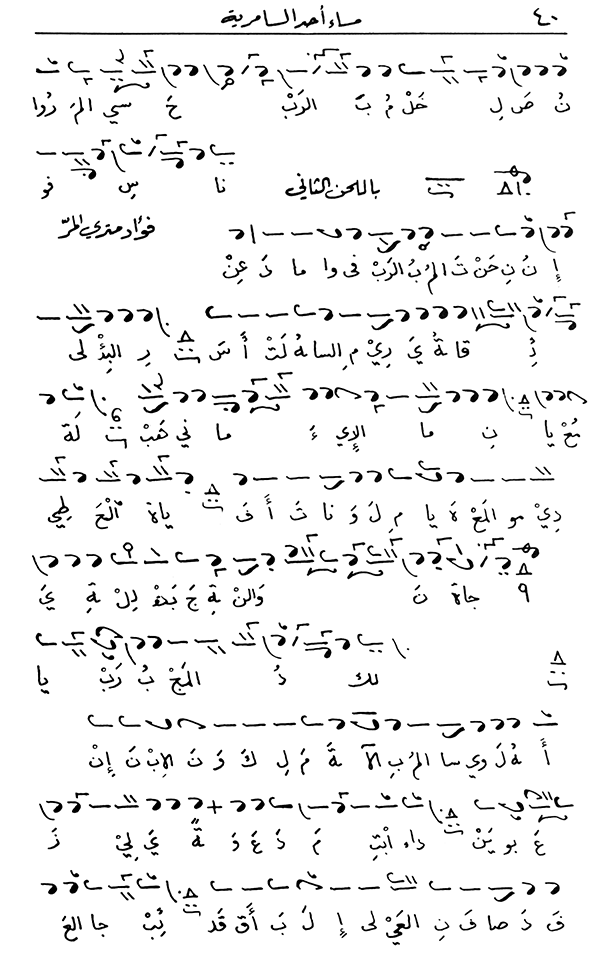 ٤٠ مساء أحد السامرية
نُ صَ لِ خَلْ مُ بَ الرَبْ حَ سي المَ زُوا
باللحن الثاني نا سِ فو
فؤاد متري المرّ
إِ نُ نِ حَنْ تَ المُ بُ الرَبْ في وا ما دَ عِنْ
ذِ قا ةُ يَ رِيْ مِ السا هُ لَتْ أَ سَ رِ البِئْ لى
يَعْ يا نِ ما الإِي ءَ ما ني هَبْ لَة
دِيْ مو المَعْ ةَ يا مِ لَ وَ نا تَ أَ فَ ياة الْحَ طِي
٩ جاة نَ وَالنْ ةِ جَ بَهْ لِلْ ةِ يَ
لك دُ المَجْ بُ رَبْ يا
أَ هُ لَ وي سا المُ بِ الآ ةَ مَ لِ كَ وَ نَ الإِبْ نَ إِنْ
عَ بو يَنْ داء ابْتِ مَ دَ عَ وَ ةً يَ لِيْ زَ
قَ دَ صا فَ نِ العَيْ لى إِ لَ بَ أَقْ قَد نِبْ جا العَ